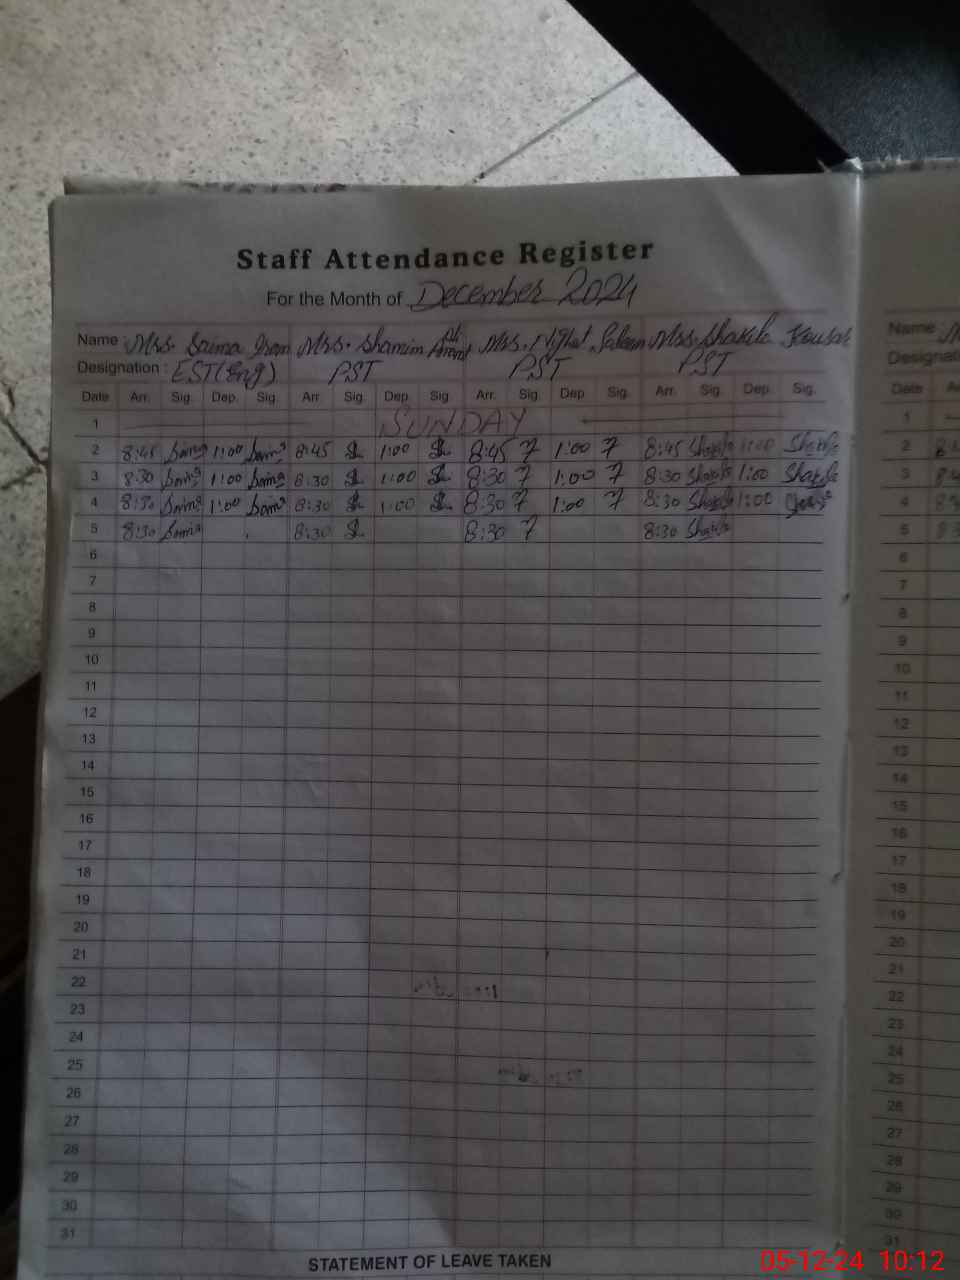 Staff Attendance Register
For the Month of December 2024
Name Mrs. Saima Iram Mrs. Shamim Mrs. Nighat Saleem Mrs. Shakila Kousar
Designation : EST(Eng) PST PST PST
Date Arr. Sig. Dep. Sig. Arr. Sig. Dep. Sig. Arr. Sig. Dep. Sig. Arr. Sig. Dep. Sig.
1 SUNDAY
2 8:45 Saima 1:00 Saima 8:45 1:00 8:45 1:00 8:45 Shakila 1:00 Shakila
3 8:30 Saima 1:00 Saima 8:30 1:00 8:30 1:00 8:30 Shakila 1:00 Shakila
4 8:30 Saima 1:00 Saima 8:30 1:00 8:30 1:00 8:30 Shakila 1:00
5 8:30 Saima 8:30 8:30 8:30 Shakila
6
7
8
9
10
11
12
13
14
15
16
17
18
19
20
21
22
23
24
25
26
27
28
29
30
31
STATEMENT OF LEAVE TAKEN
Name
Date
1
2
3
4
5
6
7
8
9
10
11
12
13
14
15
16
17
18
19
20
21
22
23
24
25
26
27
28
29
30
31
05-12-24 10:12